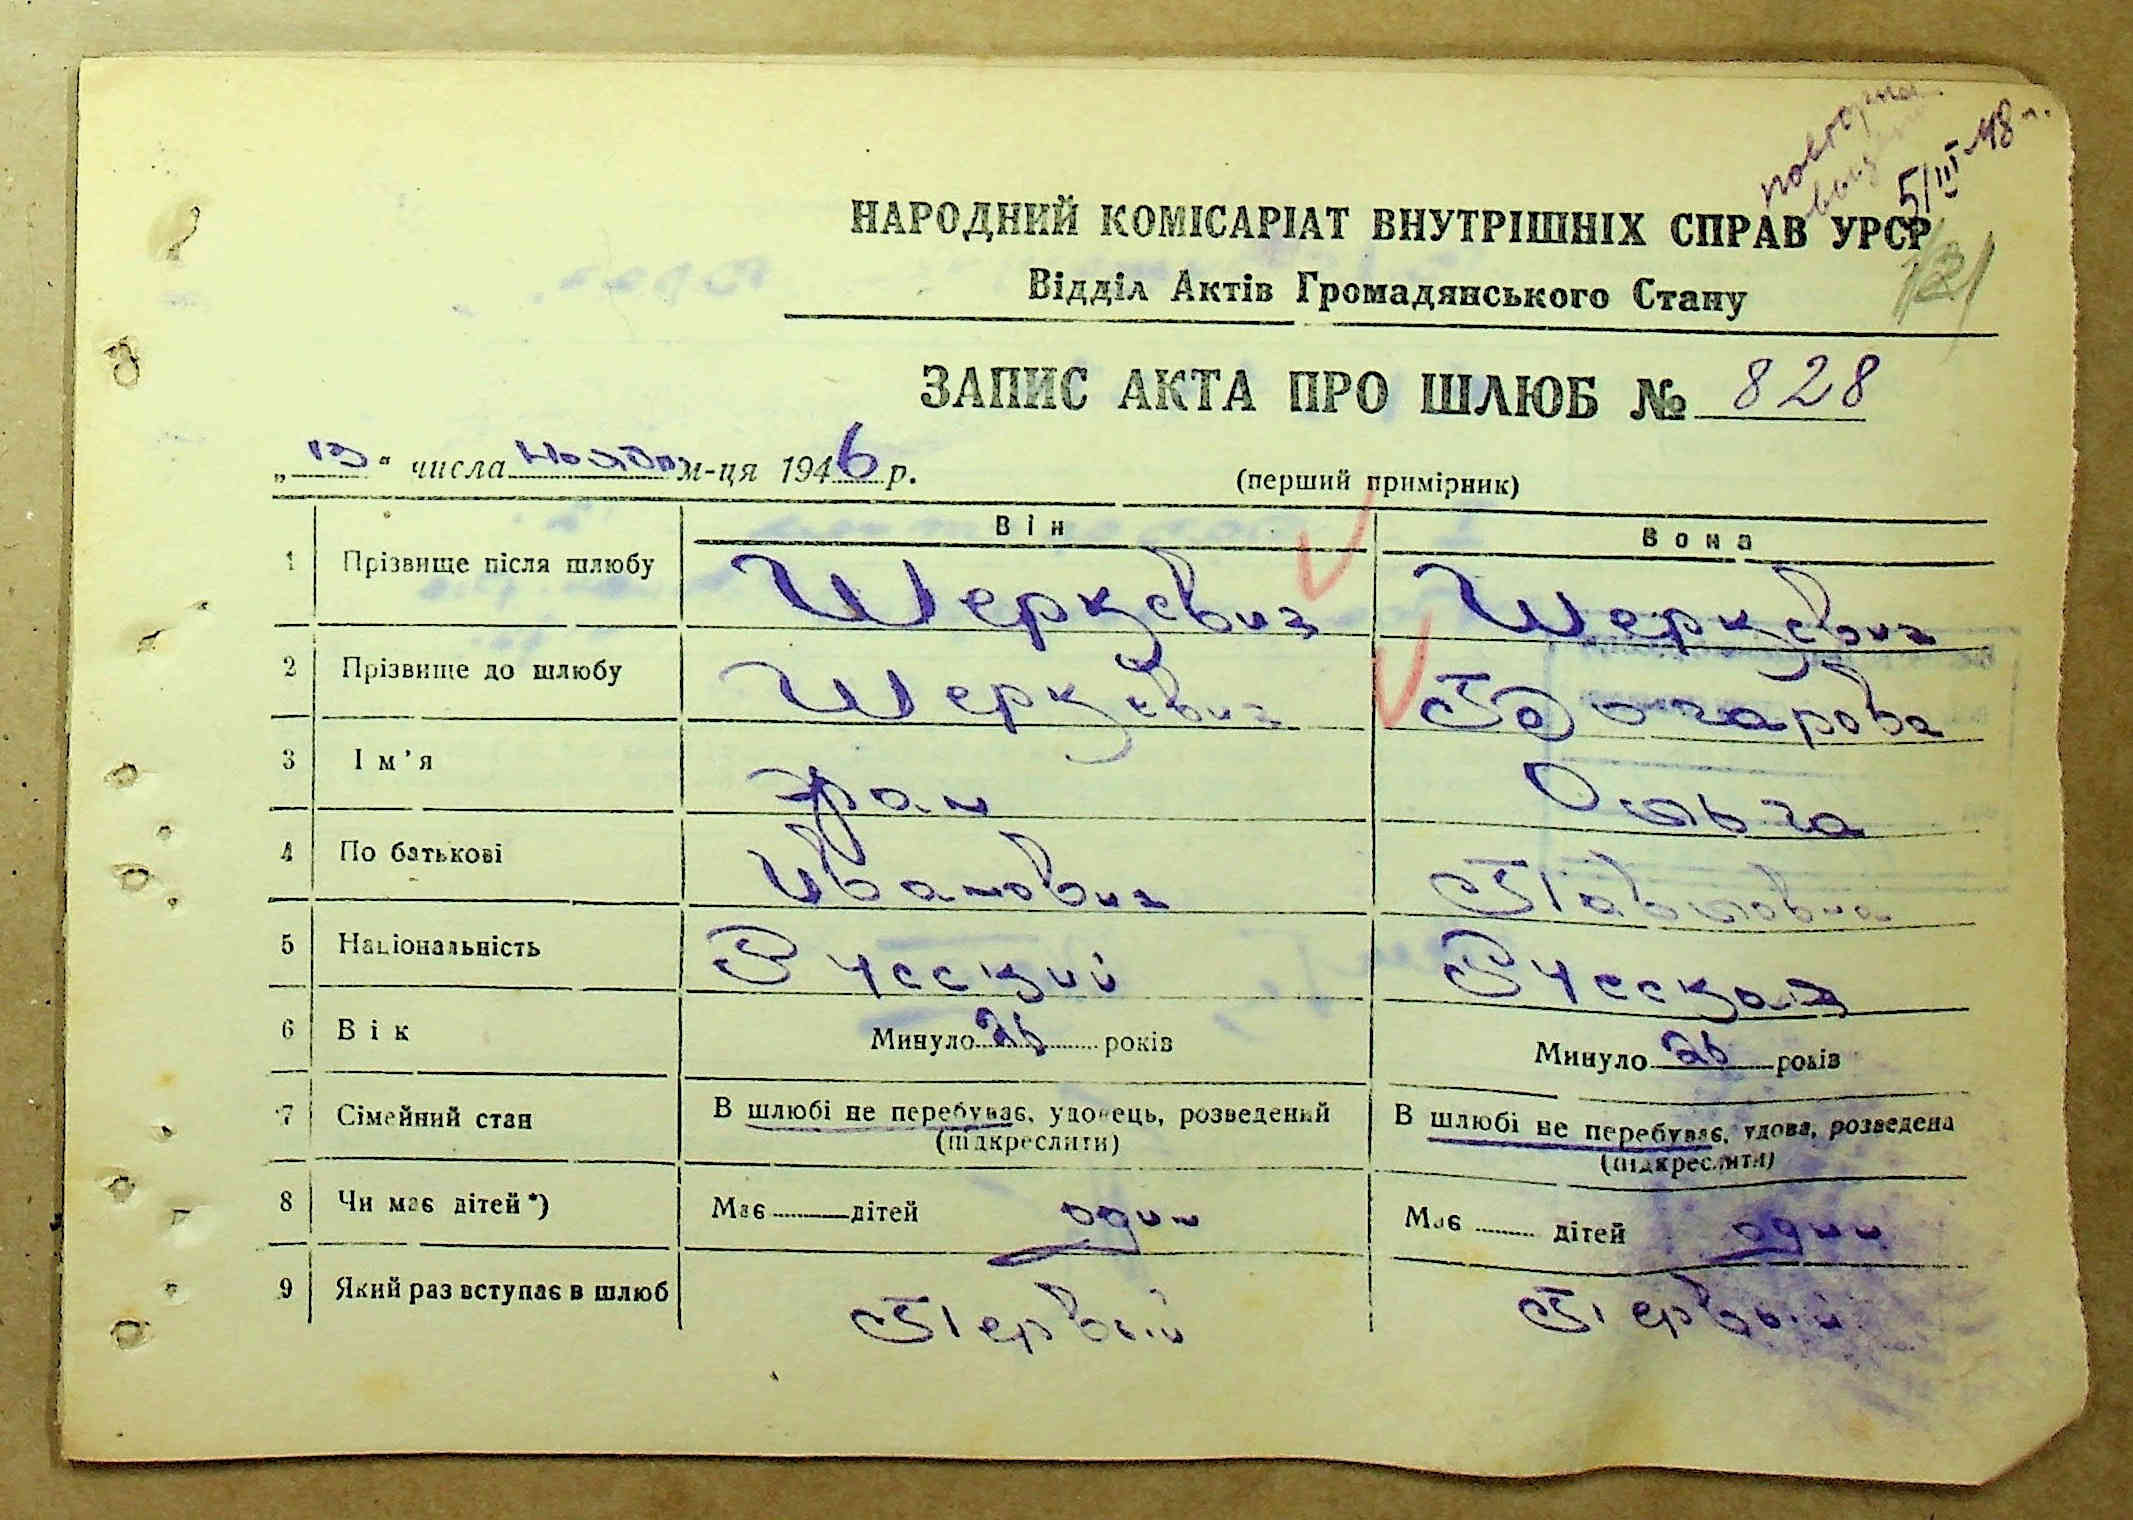 повторна
5/III 48 г.
НАРОДНИЙ КОМІСАРІАТ ВНУТРІШНІХ СПРАВ УРСР
121
Відділ Актів Громадянського Стану
ЗАПИС АКТА ПРО ШЛЮБ № 828
„13“ числа ноября м-ця 1946 р. (перший примірник)
Він Вона
1 Прізвище після шлюбу Шеркевич Шеркевич
2 Прізвище до шлюбу Шеркевич Бочарова
3 Ім'я Ольга
4 По батькові Иванович Павловна
5 Національність Русский Русская
6 Вік Минуло 26 років Минуло 26 років
7 Сімейний стан В шлюбі не перебуває, удовець, розведений В шлюбі не перебуває, удова, розведена
(підкреслити) (підкреслити)
8 Чи має дітей*) Має дітей один Має дітей один
9 Який раз вступає в шлюб Первый Первый